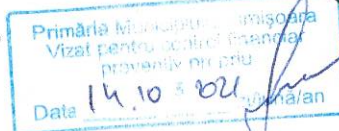 Primăria Municipiului Timișoara
Vizat pentru control financiar
preventiv propriu
Data 14.10 2021